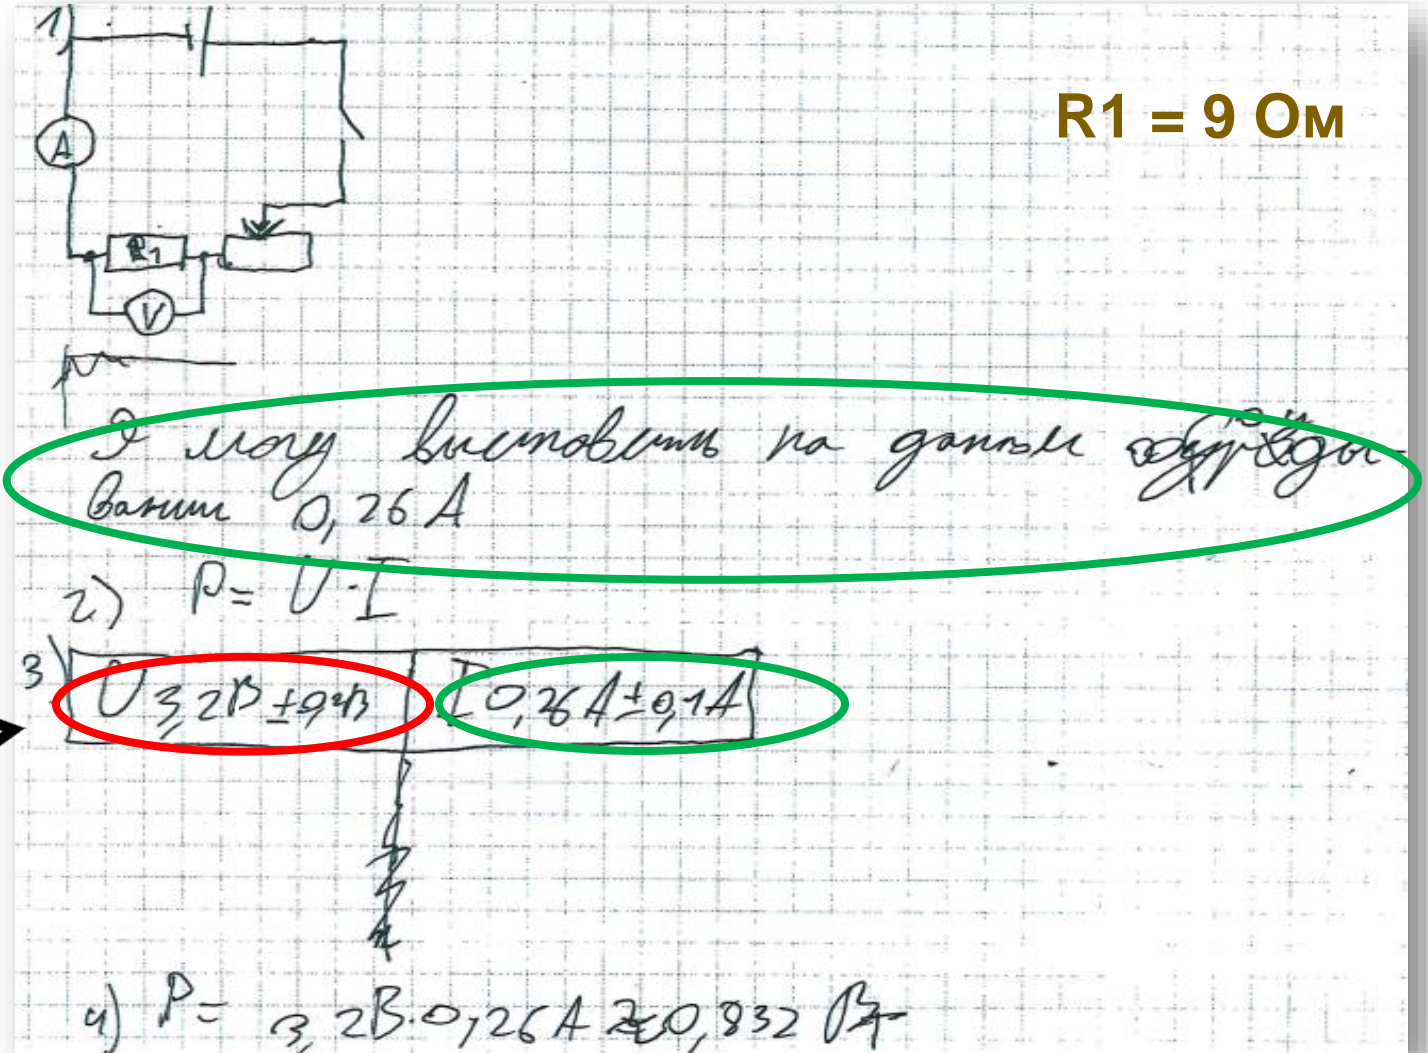 1)
R1 = 9 Ом
A
R1
V
Я могу выставить на данном оборудо-
вании 0,26 А
2) P = U · I
3) U 3,2В ± 0,2В I 0,26А ± 0,1А
4) P = 3,2В · 0,26А ≈ 0,832 Вт